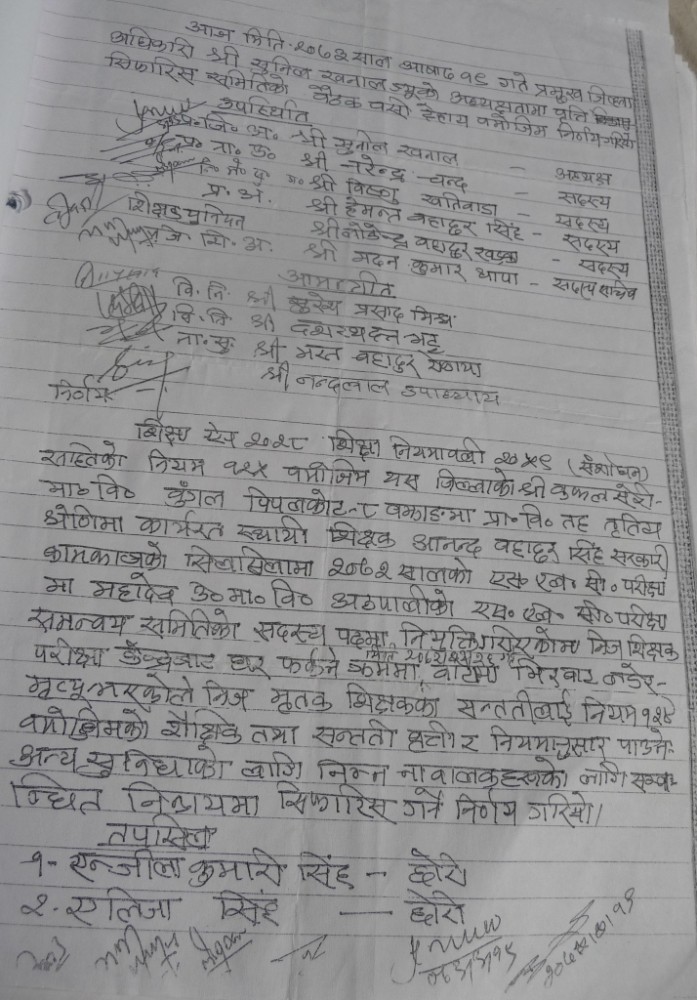 आज मिति २०७३ साल आषाढ १९ गते प्रमुख जिल्ला
अधिकारी श्री सुनिल खनाल ज्यूको अध्यक्षतामा वृत्ति
सिफारिस समितिको बैठक बसी देहाय बमोजिम निर्णय गरियो
उपस्थिति
प्र. जि. अ. श्री सुनिल खनाल - अध्यक्ष
प्र. ना. उ. श्री नरेन्द्र चन्द - सदस्य
श्री विष्णु खतिवडा - सदस्य
प्र. अ. श्री हेमन्त बहादुर सिंह - सदस्य
शिक्षक युनियन श्री लोकेन्द्र बहादुर खड्का - सदस्य
जि. शि. अ. श्री मदन कुमार थापा - सदस्य सचिव
आमन्त्रीत
वि. नि. श्री प्रसाद मिश्र
वि. नि. श्री दशरथदत्त भट्ट
ना. सु. श्री भरत बहादुर
श्री नन्दलाल उपाध्याय
निर्णय
शिक्षा ऐन २०२८ शिक्षा नियमावली २०५९ (संशोधन)
सहितको नियम १२५ बमोजिम यस जिल्लाको श्री
मा० वि० पिपलकोट-८ बझाङमा प्रा. वि. तह तृतिय
श्रेणिमा कार्यरत स्थायी शिक्षक आनन्द बहादुर सिंह सरकारी
कामकाजको सिलसिलामा २०७२ सालको एस. एल. सी. परीक्षा
मा महादेव उ० मा० वि० अठपालीको एस. एल. सी. परीक्षा
समन्वय समितिको सदस्य पदमा नियुक्ति गरिएकोमा निज शिक्षक
परीक्षा केन्द्रबाट घर फर्कने क्रममा, बाटोमा भिरबाट लडेर
मृत्यु भएकोले निज मृतक शिक्षकका सन्ततीलाई नियम १२५
बमोजिमको शैक्षिक तथा सन्तती वृत्ती र नियमानुसार पाउने
अन्य सुविधाको लागि निम्न नाबालकहरूको लागि सम्ब-
न्धित निकायमा सिफारिस गर्ने निर्णय गरियो।
तपसिल
१- एन्जीला कुमारी सिंह - छोरी
२. एलिजा सिंह — छोरी